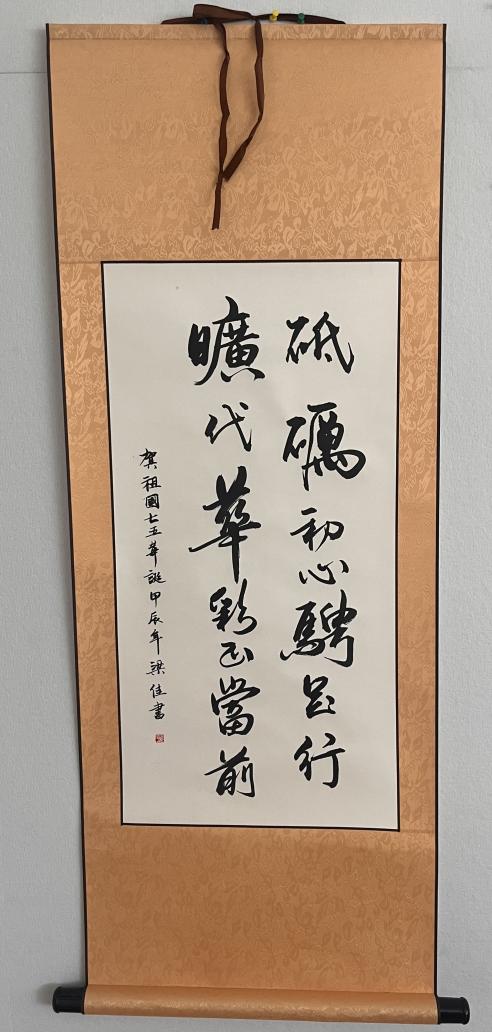 砥礪初心騁足行
曠代華彩正當前
賀祖國七五華誕甲辰年梁佳書